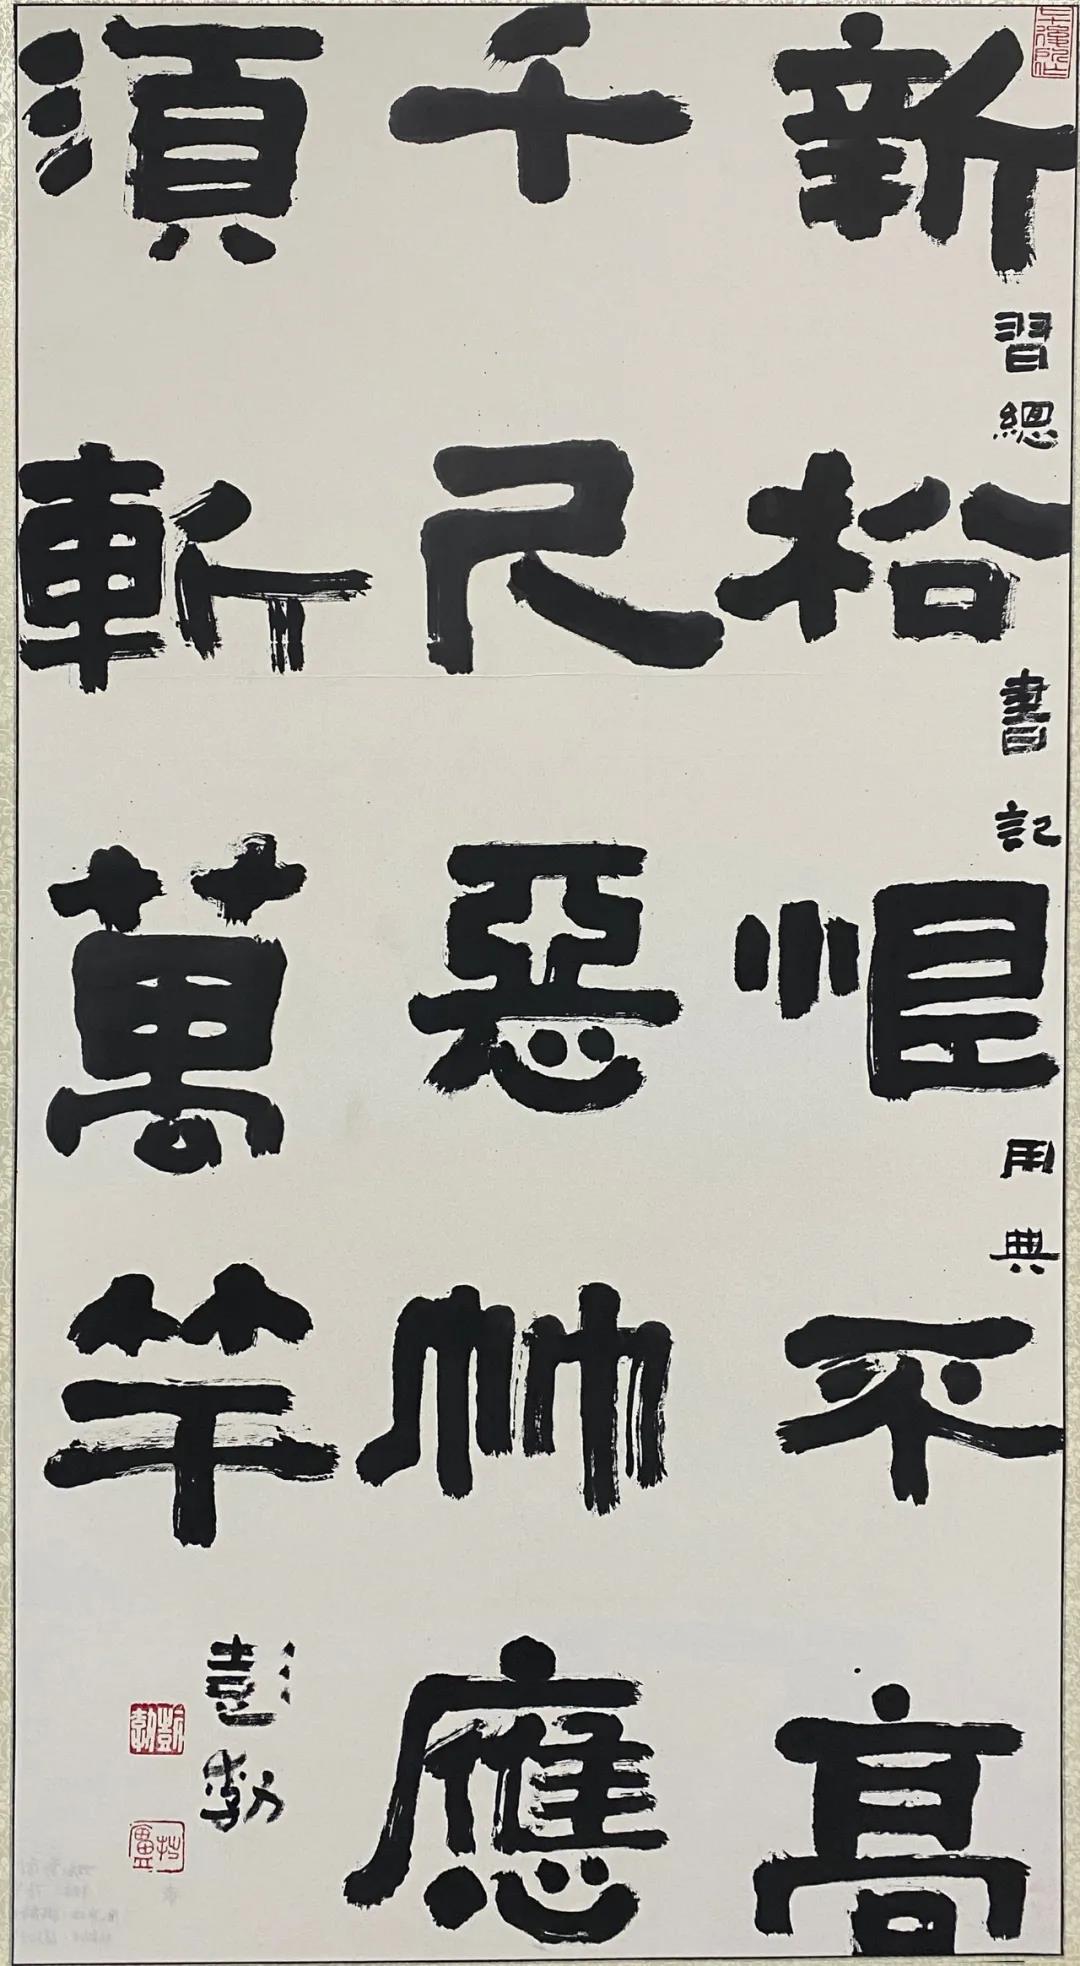 新松恨不高
千尺惡竹應
須斬萬竿
習總書記用典
彭勃
彭勃